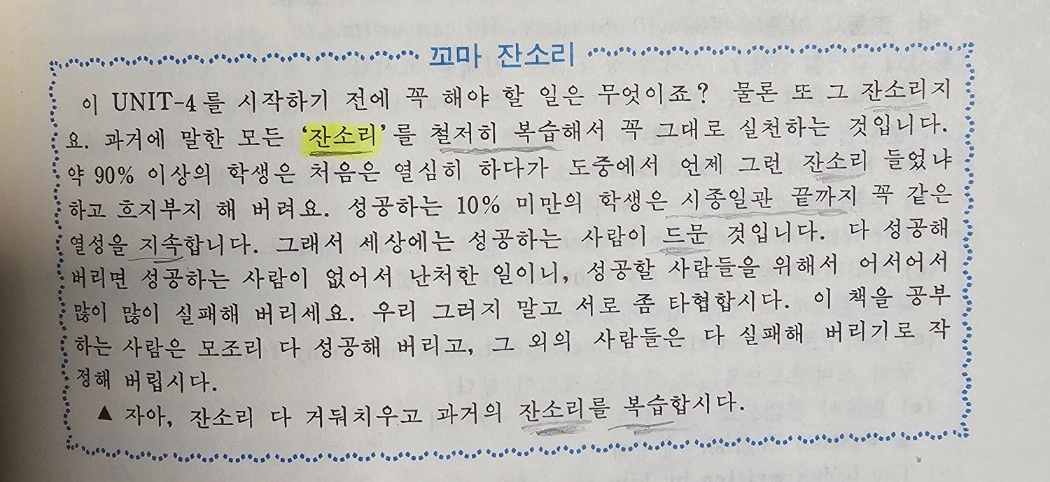 꼬마 잔소리
이 UNIT-4를 시작하기 전에 꼭 해야 할 일은 무엇이죠? 물론 또 그 잔소리지
요. 과거에 말한 모든 ‘잔소리’를 철저히 복습해서 꼭 그대로 실천하는 것입니다.
약 90% 이상의 학생은 처음은 열심히 하다가 도중에서 언제 그런 잔소리 들었냐
하고 흐지부지 해 버려요. 성공하는 10% 미만의 학생은 시종일관 끝까지 꼭 같은
열성을 지속합니다. 그래서 세상에는 성공하는 사람이 드문 것입니다. 다 성공해
버리면 성공하는 사람이 없어서 난처한 일이니, 성공할 사람들을 위해서 어서어서
많이 많이 실패해 버리세요. 우리 그러지 말고 서로 좀 타협합시다. 이 책을 공부
하는 사람은 모조리 다 성공해 버리고, 그 외의 사람들은 다 실패해 버리기로 작
정해 버립시다.
▲ 자아, 잔소리 다 거둬치우고 과거의 잔소리를 복습합시다.